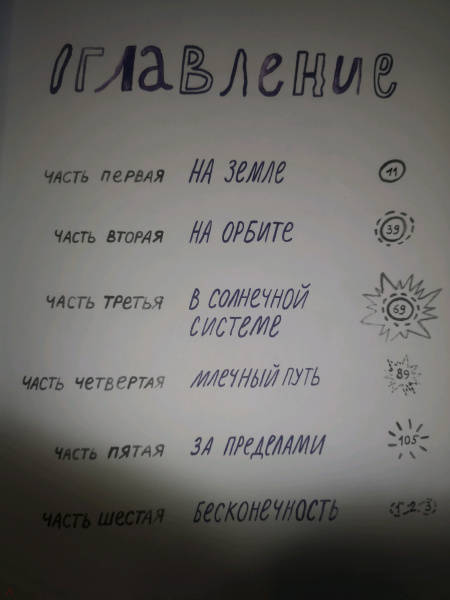 Оглавление
ЧАСТЬ ПЕРВАЯ НА ЗЕМЛЕ 11
ЧАСТЬ ВТОРАЯ НА ОРБИТЕ 39
ЧАСТЬ ТРЕТЬЯ В СОЛНЕЧНОЙ 69
СИСТЕМЕ
ЧАСТЬ ЧЕТВЕРТАЯ МЛЕЧНЫЙ ПУТЬ 89
ЧАСТЬ ПЯТАЯ ЗА ПРЕДЕЛАМИ 105
ЧАСТЬ ШЕСТАЯ БЕСКОНЕЧНОСТЬ 123